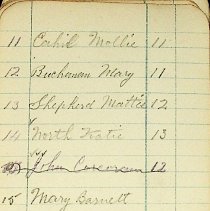 11 Cahil Mollie 11
12 Buchanan Mary 11
13 Shepherd Mattie 12
14 North Katie 13
John Corcoran 12
15 Mary Barnett